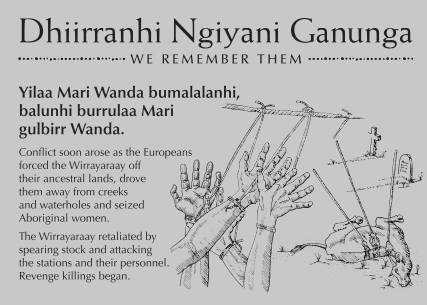 Dhiirranhi Ngiyani Ganunga
WE REMEMBER THEM
Yilaa Mari Wanda bumalalanhi,
balunhi burrulaa Mari
gulbirr Wanda.
Conflict soon arose as the Europeans
forced the Wirrayaraay off
their ancestral lands, drove
them away from creeks
and waterholes and seized
Aboriginal women.
The Wirrayaraay retaliated by
spearing stock and attacking
the stations and their personnel.
Revenge killings began.